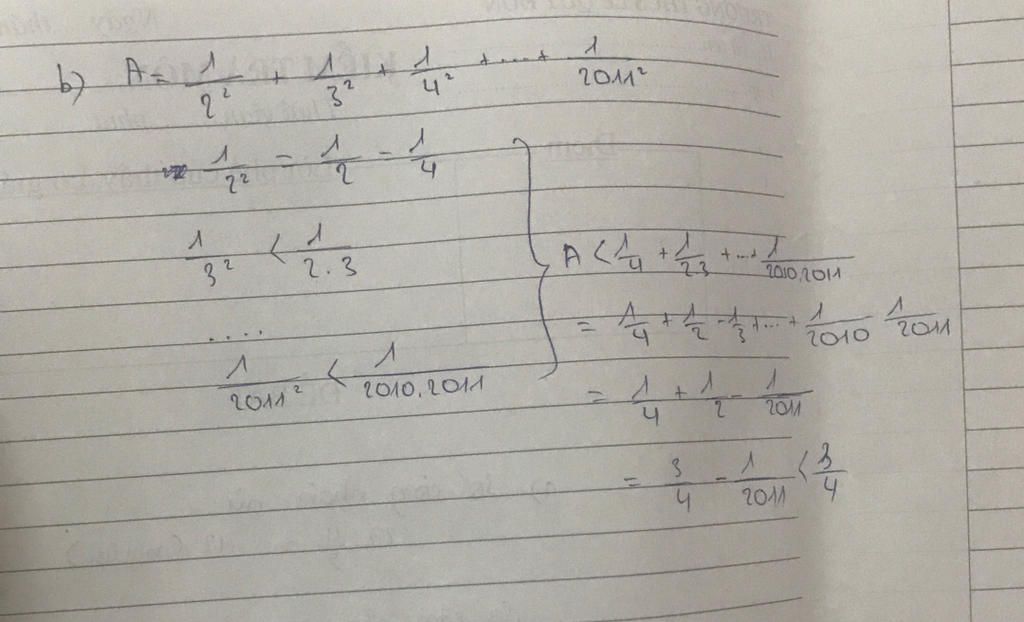 b) A = 1/2² + 1/3² + 1/4² + ... + 1/2011²
1/2² = 1/2 - 1/4
1/3² < 1/2.3
....
1/2011² < 1/2010.2011
A < 1/4 + 1/2.3 + ... + 1/2010.2011
= 1/4 + 1/2 - 1/3 + ... + 1/2010 1/2011
= 1/4 + 1/2 - 1/2011
= 3/4 - 1/2011 < 3/4